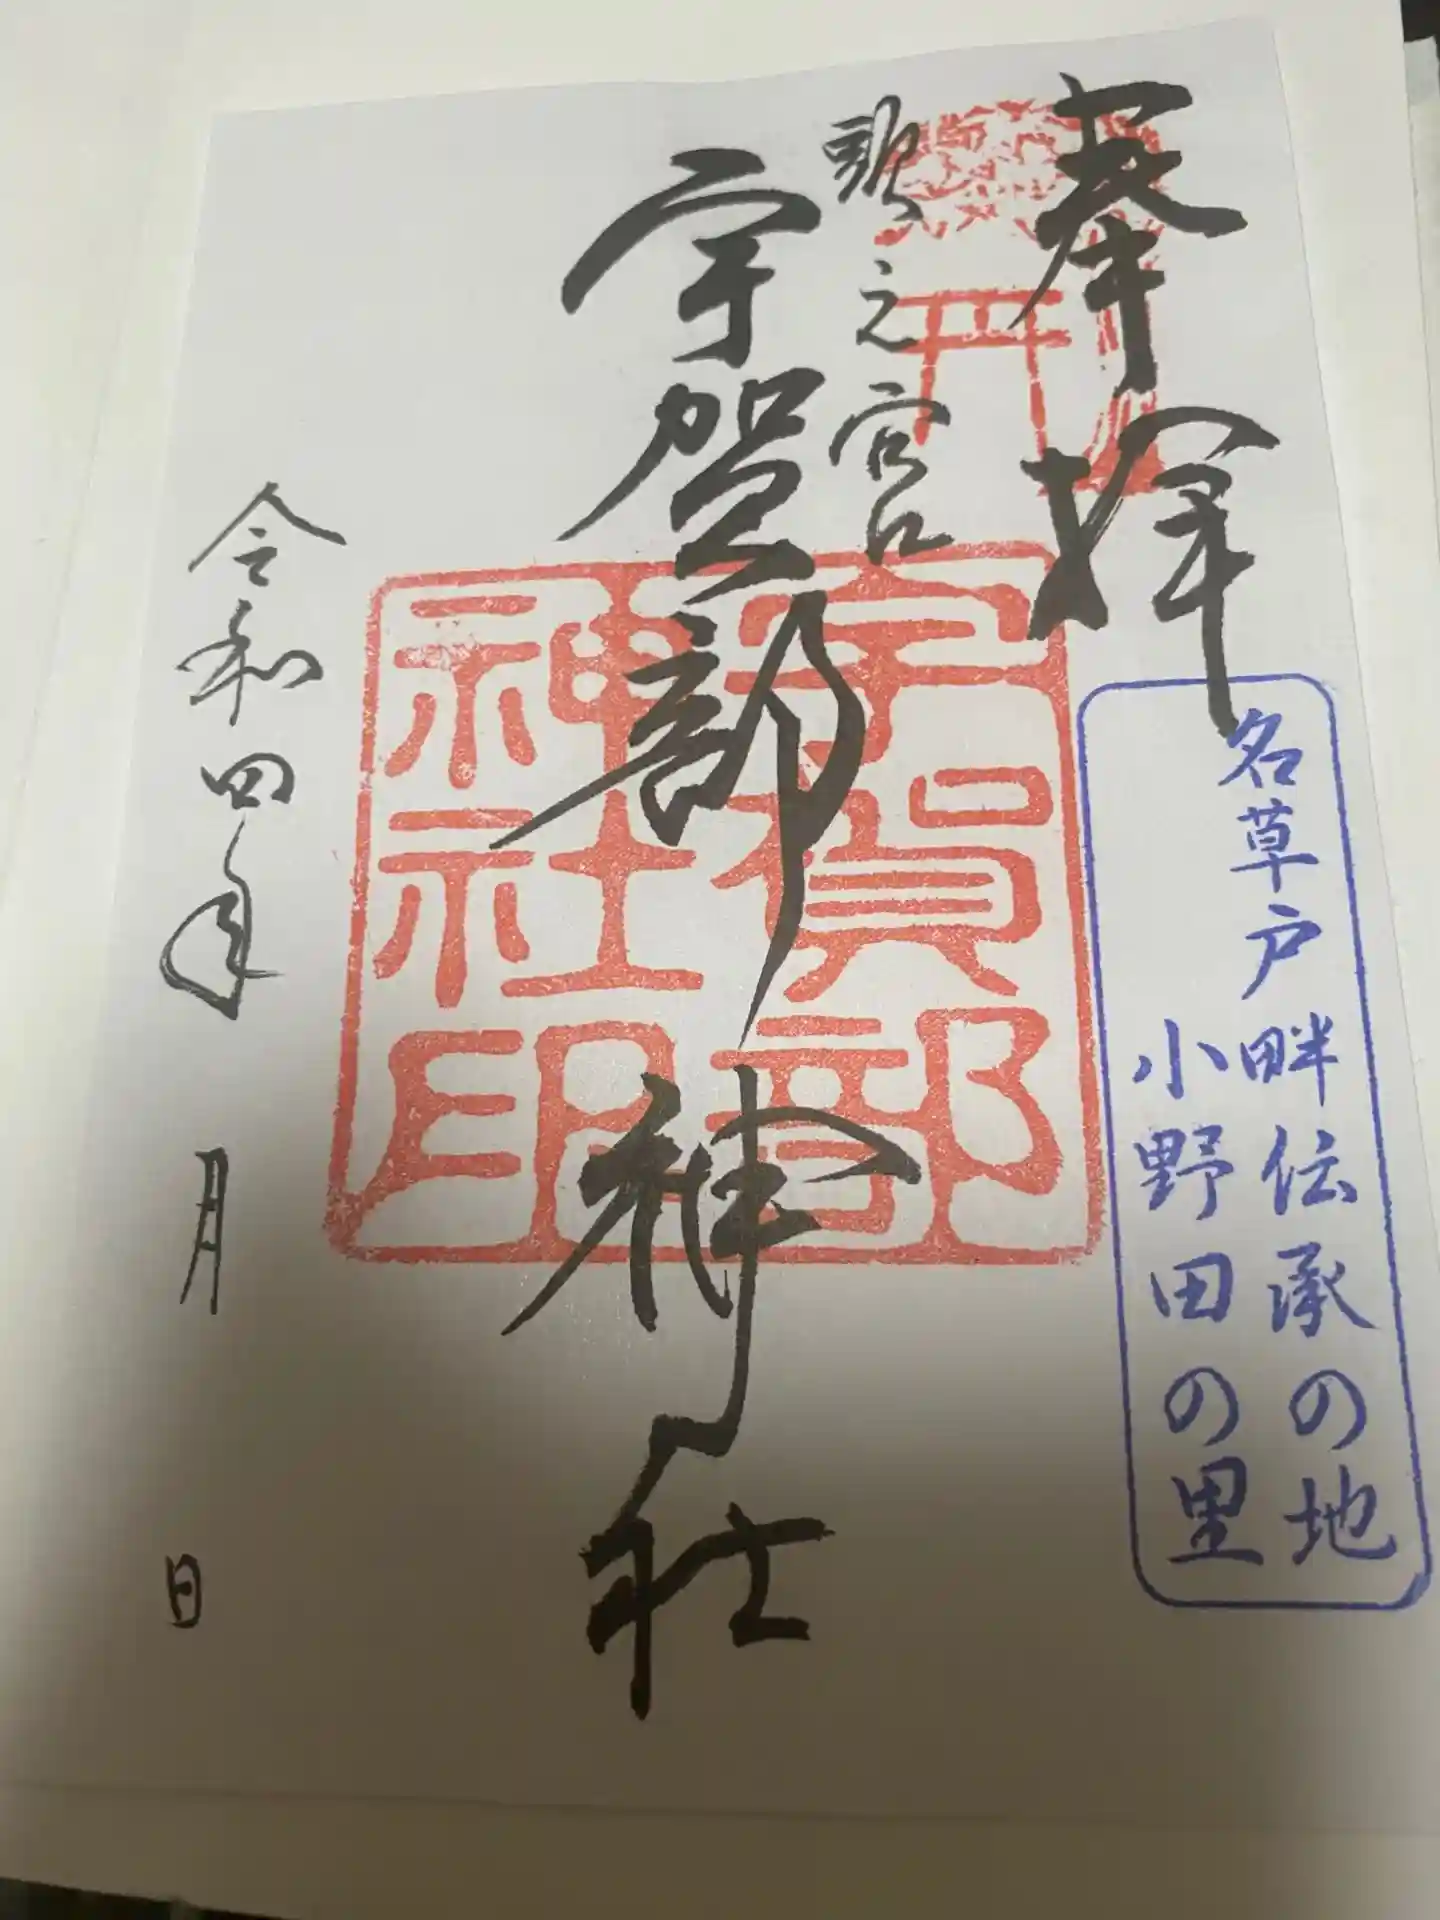 奉拝
名草戸畔伝承の地
小野田の里
頭之宮に
宇賀部神社
宇賀部
神社印
令和四年 月 日